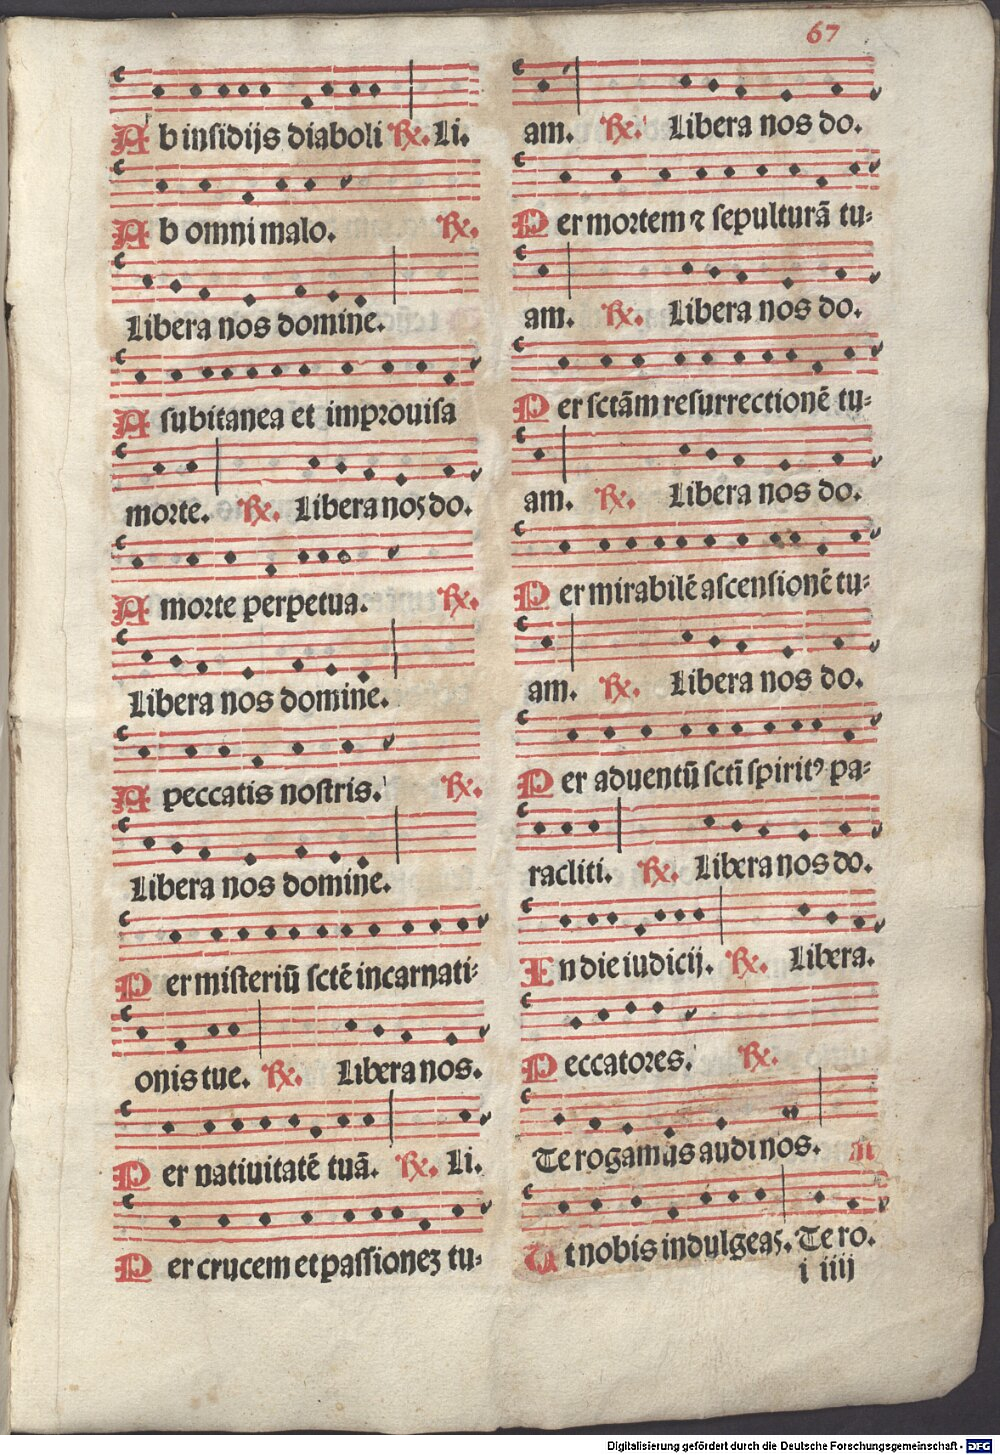 67
Ab insidijs diaboli ℞. Li.
Ab omni malo. ℞.
Libera nos domine.
A subitanea et improuisa
morte. ℞. Libera nos do.
A morte perpetua. ℞.
Libera nos domine.
A peccatis nostris. ℞.
Libera nos domine.
Per misteriū sctē incarnati-
onis tue. ℞. Libera nos.
Per natiuitatē tuā. ℞. Li.
Per crucem et passionez tu-
am. ℞. Libera nos do.
Per mortem ⁊ sepulturā tu-
am. ℞. Libera nos do.
Per sctām resurrectionē tu-
am. ℞. Libera nos do.
Per mirabilē ascensionē tu-
am. ℞. Libera nos do.
Per aduentū sctī spiritꝰ pa-
racliti. ℞. Libera nos do.
En die iudicij. ℞. Libera.
Peccatores. ℞.
Te rogamus audi nos.
Ut nobis indulgeas. Te ro.
i iiij
Digitalisierung gefördert durch die Deutsche Forschungsgemeinschaft - DFG